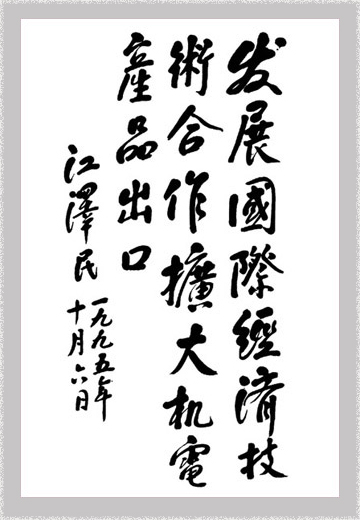 发展國際經濟技
術合作擴大机電
產品出口
江澤民
一九九五年
十月六日